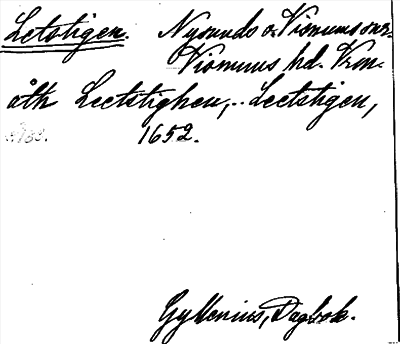 Letstigen. Nysunds o. Visnums snr.
Visnums hd. Vrm.
åth Leetstighen,.. Leetstigen,
1652.
Gyllenius, Dagbok.